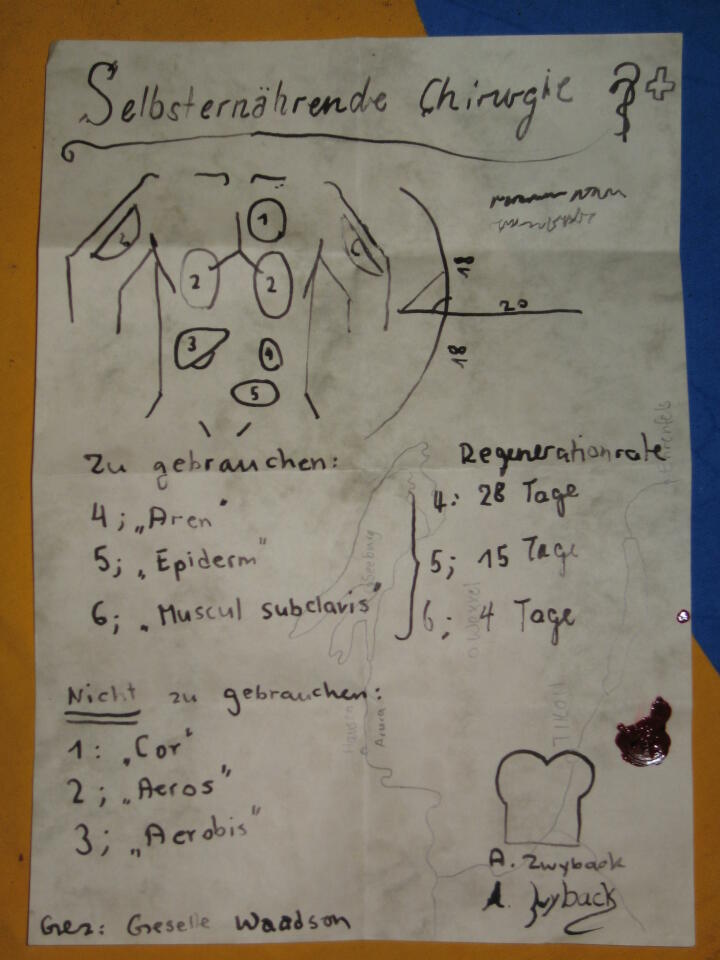 Selbsternährende Chirurgie
1
2
2
2
3
4
5
18
20
18
Zu gebrauchen:
4; „Aren"
5; „Epiderm"
6; „Muscul subclavis"
Regenerationrate
4: 28 Tage
5; 15 Tage
6; 4 Tage
Nicht zu gebrauchen:
1: „Cor"
2; „Aeros"
3; „Aerobis"
Seeburg
A. Zwyback
A. Zwyback
Gez: Geselle Waadson